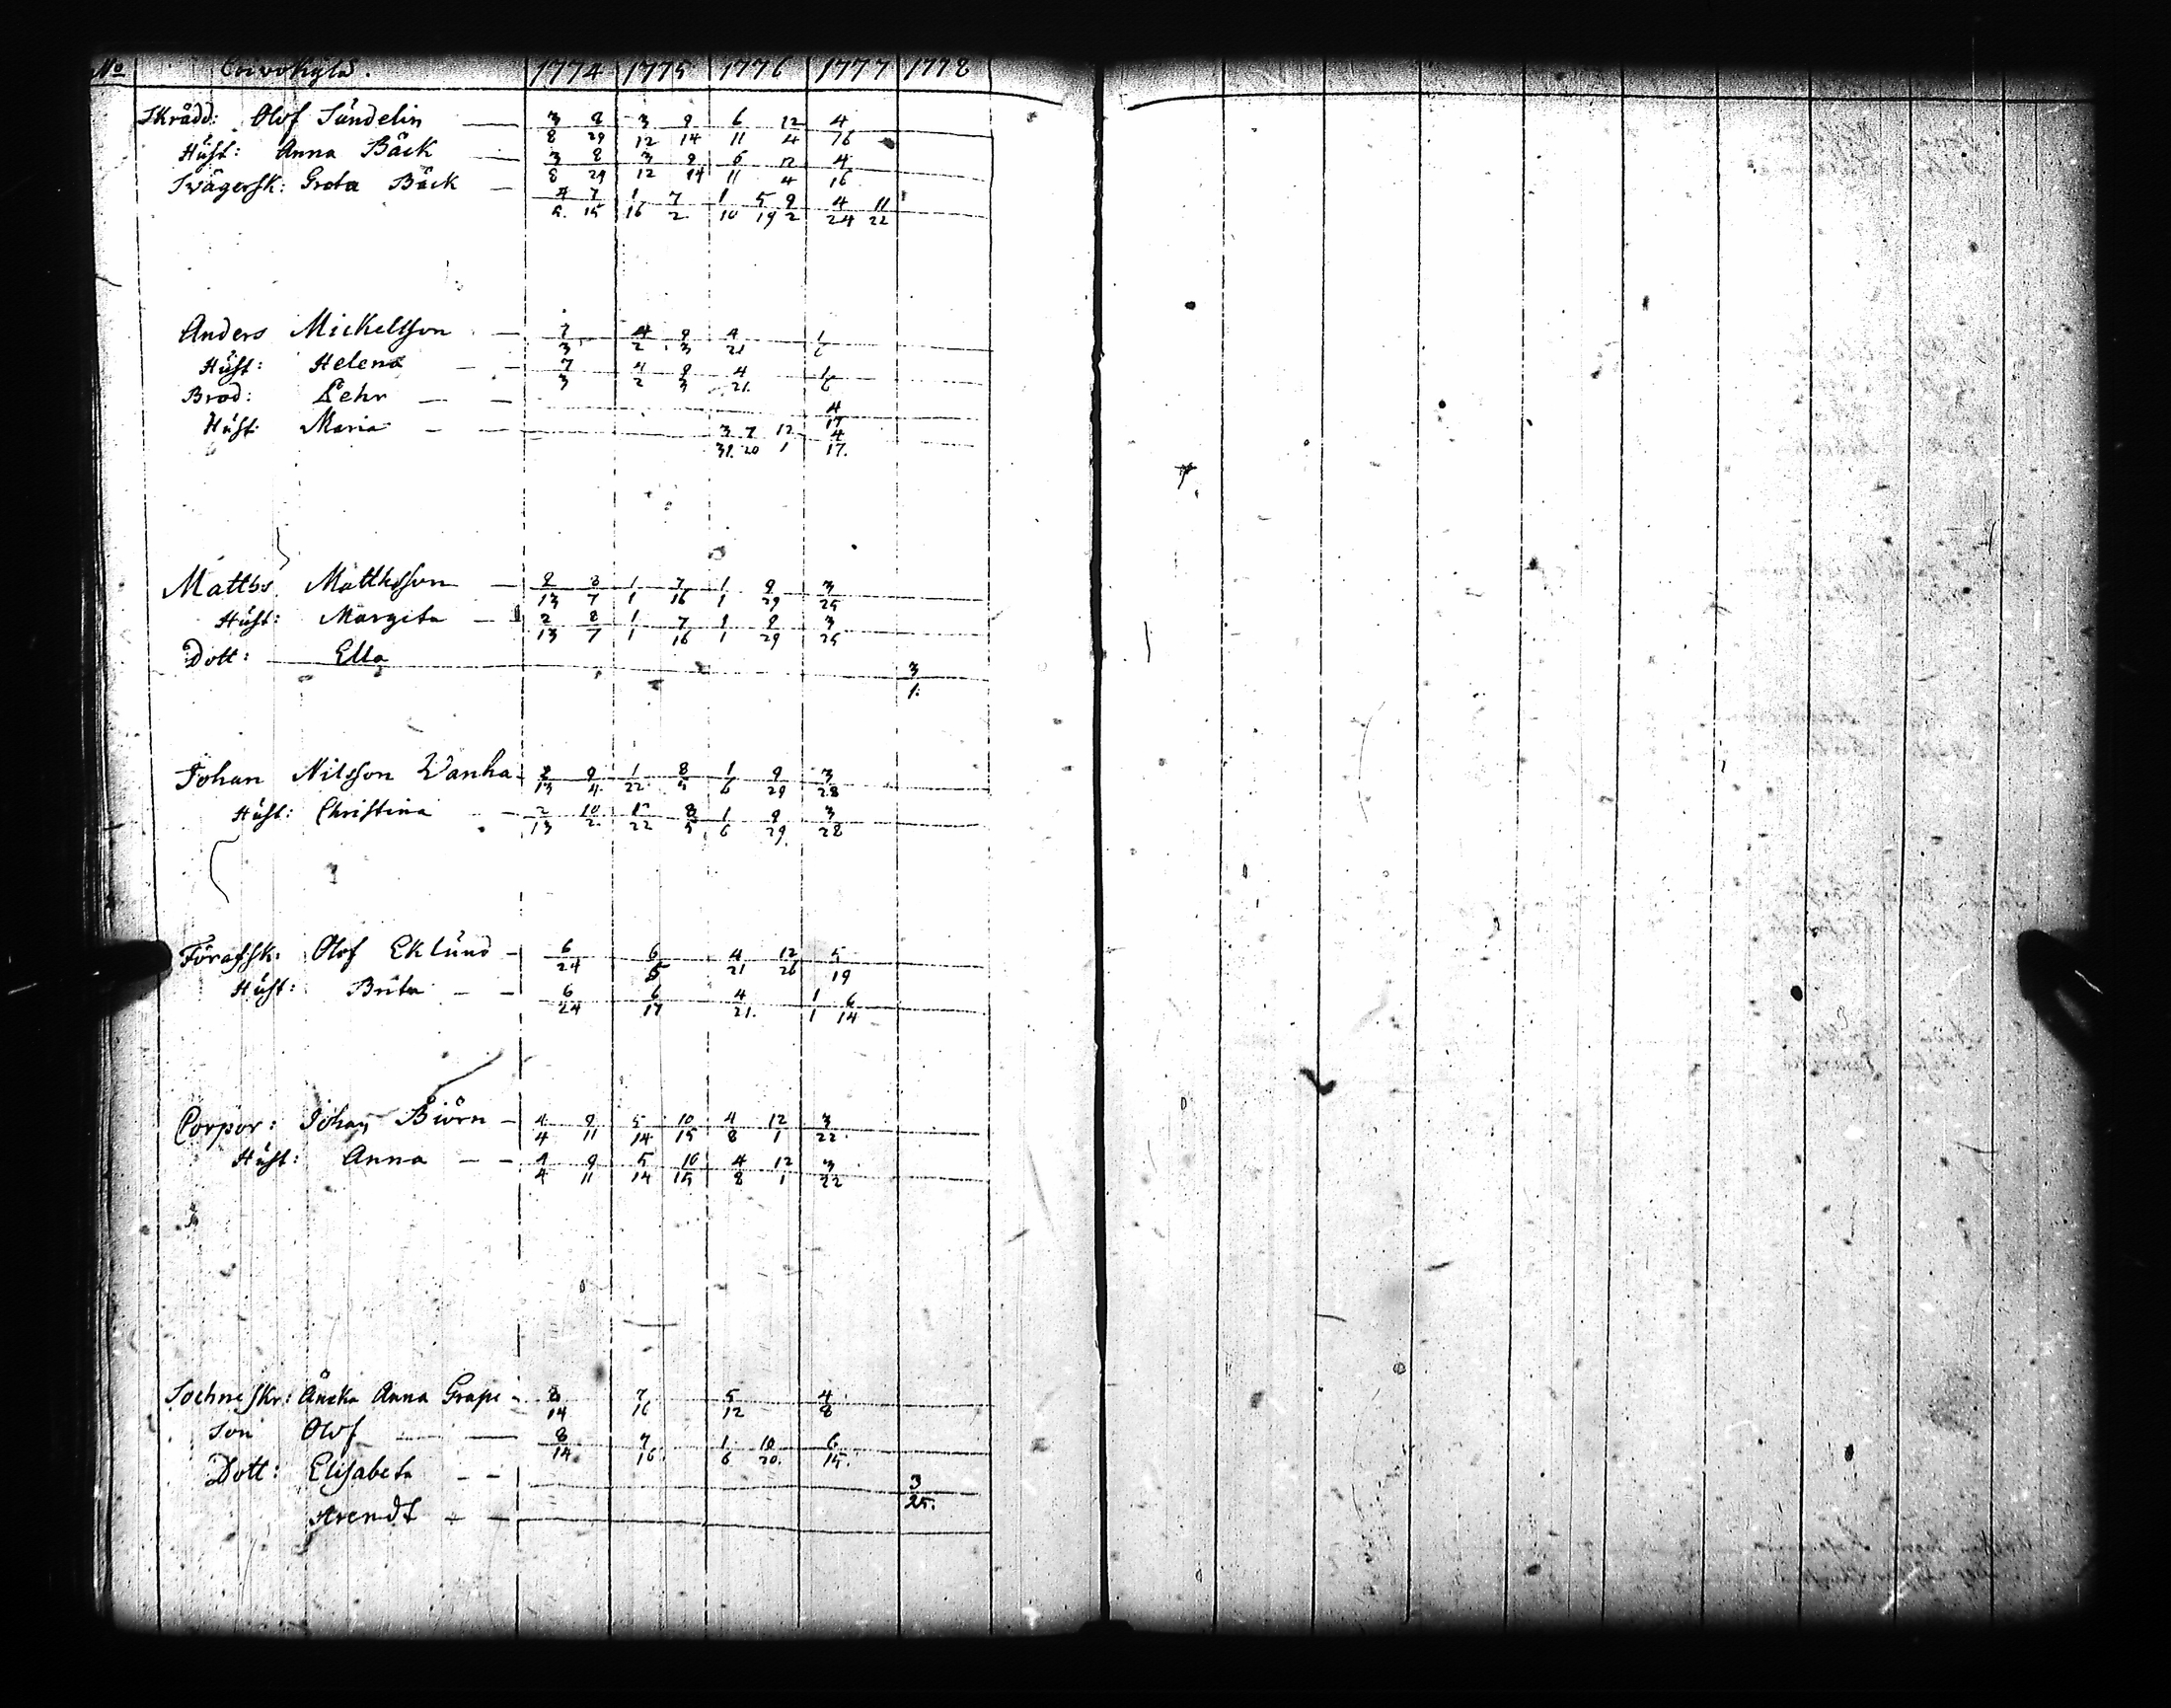 No Corvokylä. 1774 1775 1776 1777 1778
Skrädd: Olof Sundelin — 3/8 8/29 3/12 9/14 6/11 12/4 4/16
Hust: Anna Bäck — 3/8 8/29 3/12 9/14 6/11 12/4 4/16
Swägersk: Greta Bäck — 4/5. 7/15 1/16 7/2 1/10 5/19 9/2 4/24 11/22
Anders Mickelsson — 7/3 4/2 9/3 4/21 1/6
Hust: Helena — 7/3 4/2 9/3 4/21. 1/6
Brod: Pehr — 4/17
Hust: Maria — 3/31. 7/20 12/1 4/17.
Matths Matthsson — 2/13 8/7 1/1 7/16 1/1 9/29 3/25
Hust: Margeta — 2/13 8/7 1/1 7/16 1/1 9/29 3/25
Dott: Ella 3/1.
Johan Nilsson Wanha 2/13 9/4 1/22 8/5 1/6 9/29 3/28
Hust: Christina — 2/13 10/2 1/22 8/5 1/6 9/29. 3/28
Olof Eklund — 6/24 6/5 4/21 12/26 5/19
Hust: Brita — 6/24 6/17 4/21. 1/1 6/14
Corpor: Johan Biörn — 4/4 9/11 5/14 10/15 4/8 12/1 3/22.
Hust: Anna — 4/4 9/11 5/14 10/15 4/8 12/1 3/22
Sochneskr: Äncka Anna Grape 8/14 7/16 5/12 4/8
Son Olof — 8/14 7/16. 1/6 10/20. 6/15.
Dott: Elisabeta — 3/25.
Arendt —